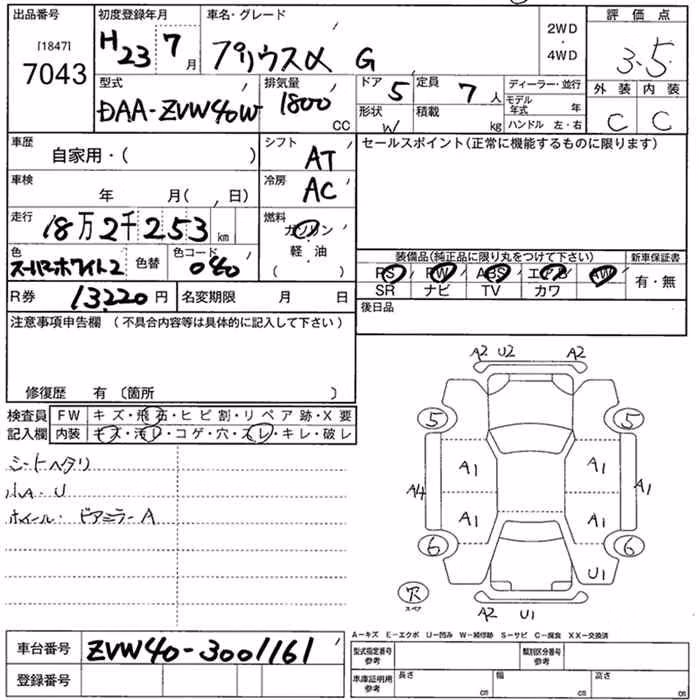 出品番号 初度登録年月 車名・グレード 評価点
[1847]
7043
H23 7月
プリウスα G
2WD
・
4WD
3.5
型式
DAA-ZVW40W
排気量
1800 CC
ドア 5 定員 7人
形状 W 積載 kg
ディーラー・並行
モデル年式 年
ハンドル 左・右
外装 内装
C C
車歴 自家用・( )
シフト AT
セールスポイント(正常に機能するものに限ります)
車検 年 月( , 日)
冷房 AC
走行 18万2千253 km
燃料 ガソリン
・
軽油
( )
色 スーパーホワイト2 色替 色コード 040
装備品(純正品に限り丸をつけて下さい) 新車保証書
PS PW ABS エアB AW 有・無
SR ナビ TV カワ
R券 13220円 名変期限 月 日
後日品
注意事項申告欄 (不具合内容等は具体的に記入して下さい)
修復歴 有 〔箇所 〕
検査員 FW キズ・飛石・ヒビ割・リペア跡・X要
記入欄 内装 キズ・汚レ・コゲ・穴・スレ・キレ・破レ
シートヘタリ
小A.U
ホイール・ドアミラーA
A2 U2 A2
5 5
A1 A1
A4 A1
A1 A1
6 6
U1
欠
スペア
A2 U1
A−キズ E−エクボ U−凹み W−補修跡 S−サビ C−腐食 XX−交換済
車台番号 ZVW40-3001161
型式指定番号 参考 類別区分番号 参考
登録番号
車庫証明用 参考 長さ cm 幅 cm 高さ cm